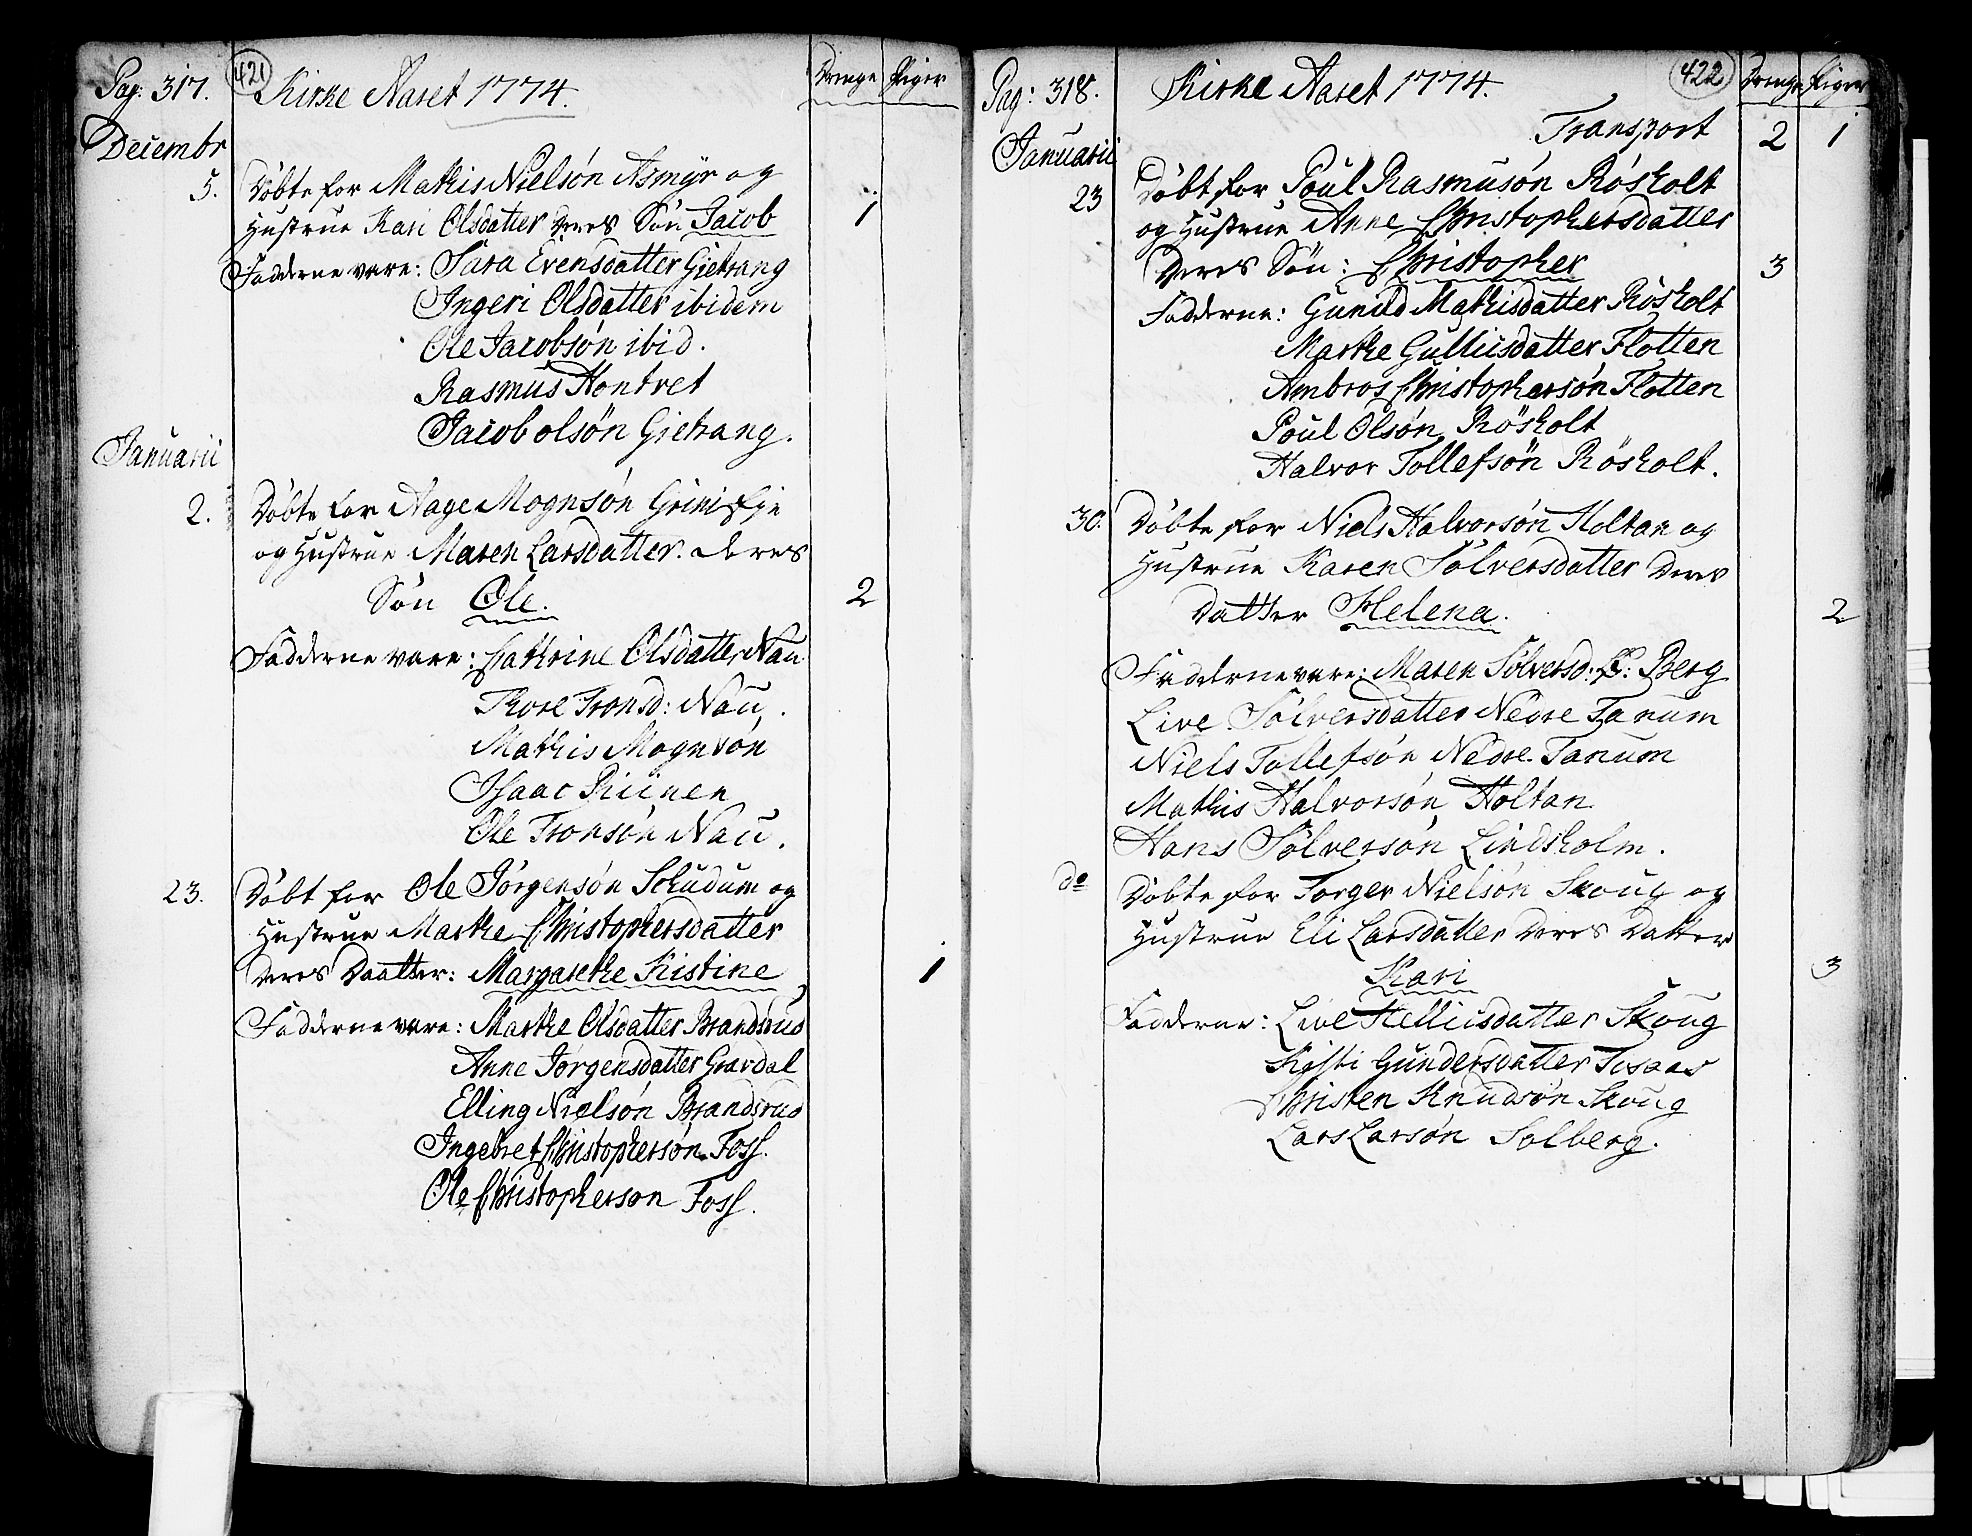 Pag: 317. 421 Kirke Aaret 1774. Drenge Piger
Decembr
5. Döbte for Mathis Nielsön Asmyr og
Hustrue Kari Olsdatter deres Sön Jacob 1
Fadderne vare: Sara Evensdatter Gietrang
Ingeri Olsdatter ibidem
Ole Jacobsön ibid.
Rasmus Hontvet
Jacob olsön Gietrang.
Januarii
2. Döbte for Aage Mognsön Grini Eje
og Hustrue Maren Larsdatter. deres
Sön Ole. 2
Fadderne vare: Cathrine Olsdatter Nau
Thore Tronsd: Nau.
Mathis Mognsön
Isaac Riinen
Ole Tronsön Nau.
23. Döbt for Ole Jörgensön Schudum og
Hustrue Marthe Christophersdatter
deres Daatter: Margarethe Kistine 1
Fadderne vare: Marthe Olsdatter Brandsrud
Anne Jørgensdatter Grardal
Elling Nielsön Brandsrud
Ingebret Christophersön Foss.
Ole Christopherson Foss.
Pag: 318. Kirke Aaret 1774. 422 Drenge Piger
Transport 2 1
Januarii
23 Döbt for Poul Rasmusön Rösholt
og Hustrue Anne Christophersdatter
Deres Sön: Christopher 3
Fadderne: Gunild Mathisdatter Rösholt
Marthe Gulliisdatter Flotten
Ambros Christophersön Flotten
Poul Olsön Rösholt
Halvor Tollefsön Rösholt.
30. Döbte for Niels Halvorsön Holtan og
Hustrue Karen Sölversdatter deres
Datter Helena. 2
Fadderne vare: Maren Sölversd: L: Berg
Live Sölversdatter Nedre Tanum
Niels Tollefsön Nedre Tanum
Mathis Halvorsön Holtan
Hans Sölversön Lindsholm.
do Döbte for Torger Nielsön Skoug og
Hustrue Eli Larsdatter Deres Datter
Kari 3
Fadderne: Live Helliisdatter Skoug
Kisti Gundersdatter Tosaas
Christen Knudsön Skoug
Lars Larsön Solberg.